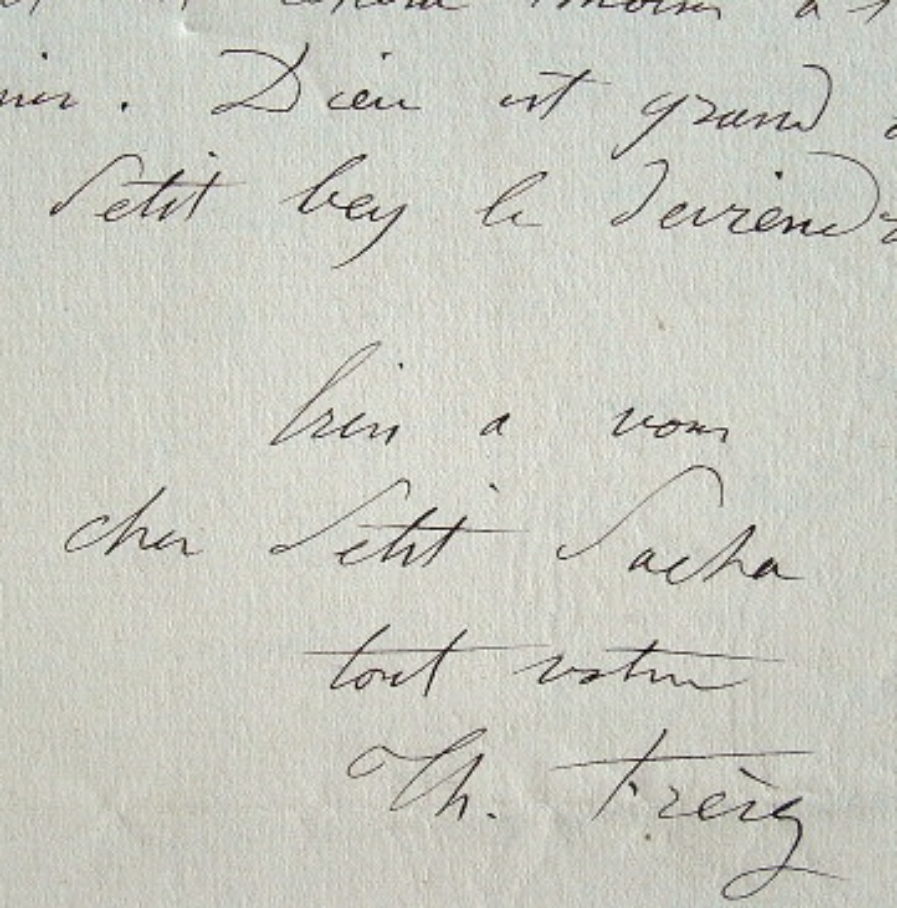 moins a
. Dieu est grand
Petit bey le deviendr
bien a vous
cher Petit Pacha
tout votre
Th. Frère